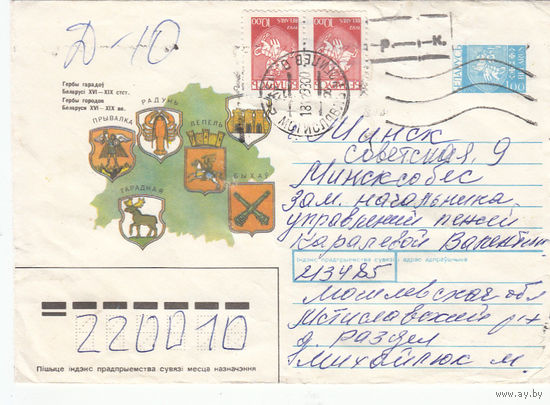 Д-10
Гербы гарадоў
Беларусі XVI – XIX стст.
Гербы городов
Беларуси XVI – XIX вв.
РАДУНЬ
ПРЫВАЛКА
ЛЕПЕЛЬ
БЫХАЎ
ГАРАДНАЯ
1992 BELARUS 10.00
1992 BELARUS 10.00
Р-К
БЕЛАРУСЬ
1.00
Минск
Советская, 9
Минсксобес
Зам. начальника
управлений пенсий
Каралевой Валентине
Індэкс прадпрыемства сувязі і адрас адпраўшчыка
213485
Могилевская обл
Мстиславский р-н
д Раздел
Михайлюк М.
220010
Пішыце індэкс прадпрыемства сувязі месца назначэння
www.ay.by